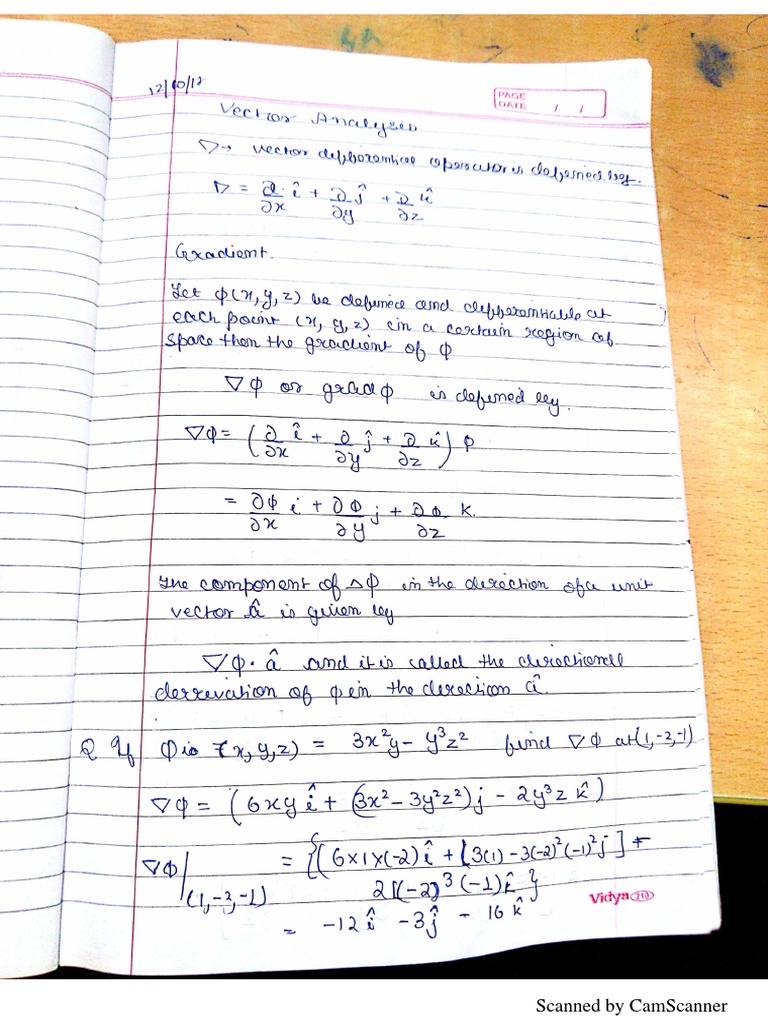 12/10/17
PAGE
DATE / /
Vector Analysis
∇ → vector differential operator is defined by.
∇ = ∂/∂x î + ∂/∂y ĵ + ∂/∂z k̂
Gradient.
Let φ(x, y, z) be defined and differentiable at
each point (x, y, z) in a certain region of
space then the gradient of φ
∇φ or grad φ is defined by.
∇φ = (∂/∂x î + ∂/∂y ĵ + ∂/∂z k̂) φ
= ∂φ/∂x i + ∂φ/∂y j + ∂φ/∂z k.
The component of △φ in the direction of a unit
vector â is given by
∇φ · â and it is called the directional
derrevation of φ in the direction â.
Q If φ is (x, y, z) = 3x²y – y³z² find ∇φ at (1, -2, -1)
∇φ = (6xy î + (3x² – 3y²z²) j – 2y³z k̂)
∇φ|(1, -3, -1) = {[6×1×(-2) î + [3(1) – 3(-2)²(-1)² j] +
2[(-2)³ (-1) k̂}
= -12 î – 3 ĵ – 16 k̂
Vidya 210
Scanned by CamScanner